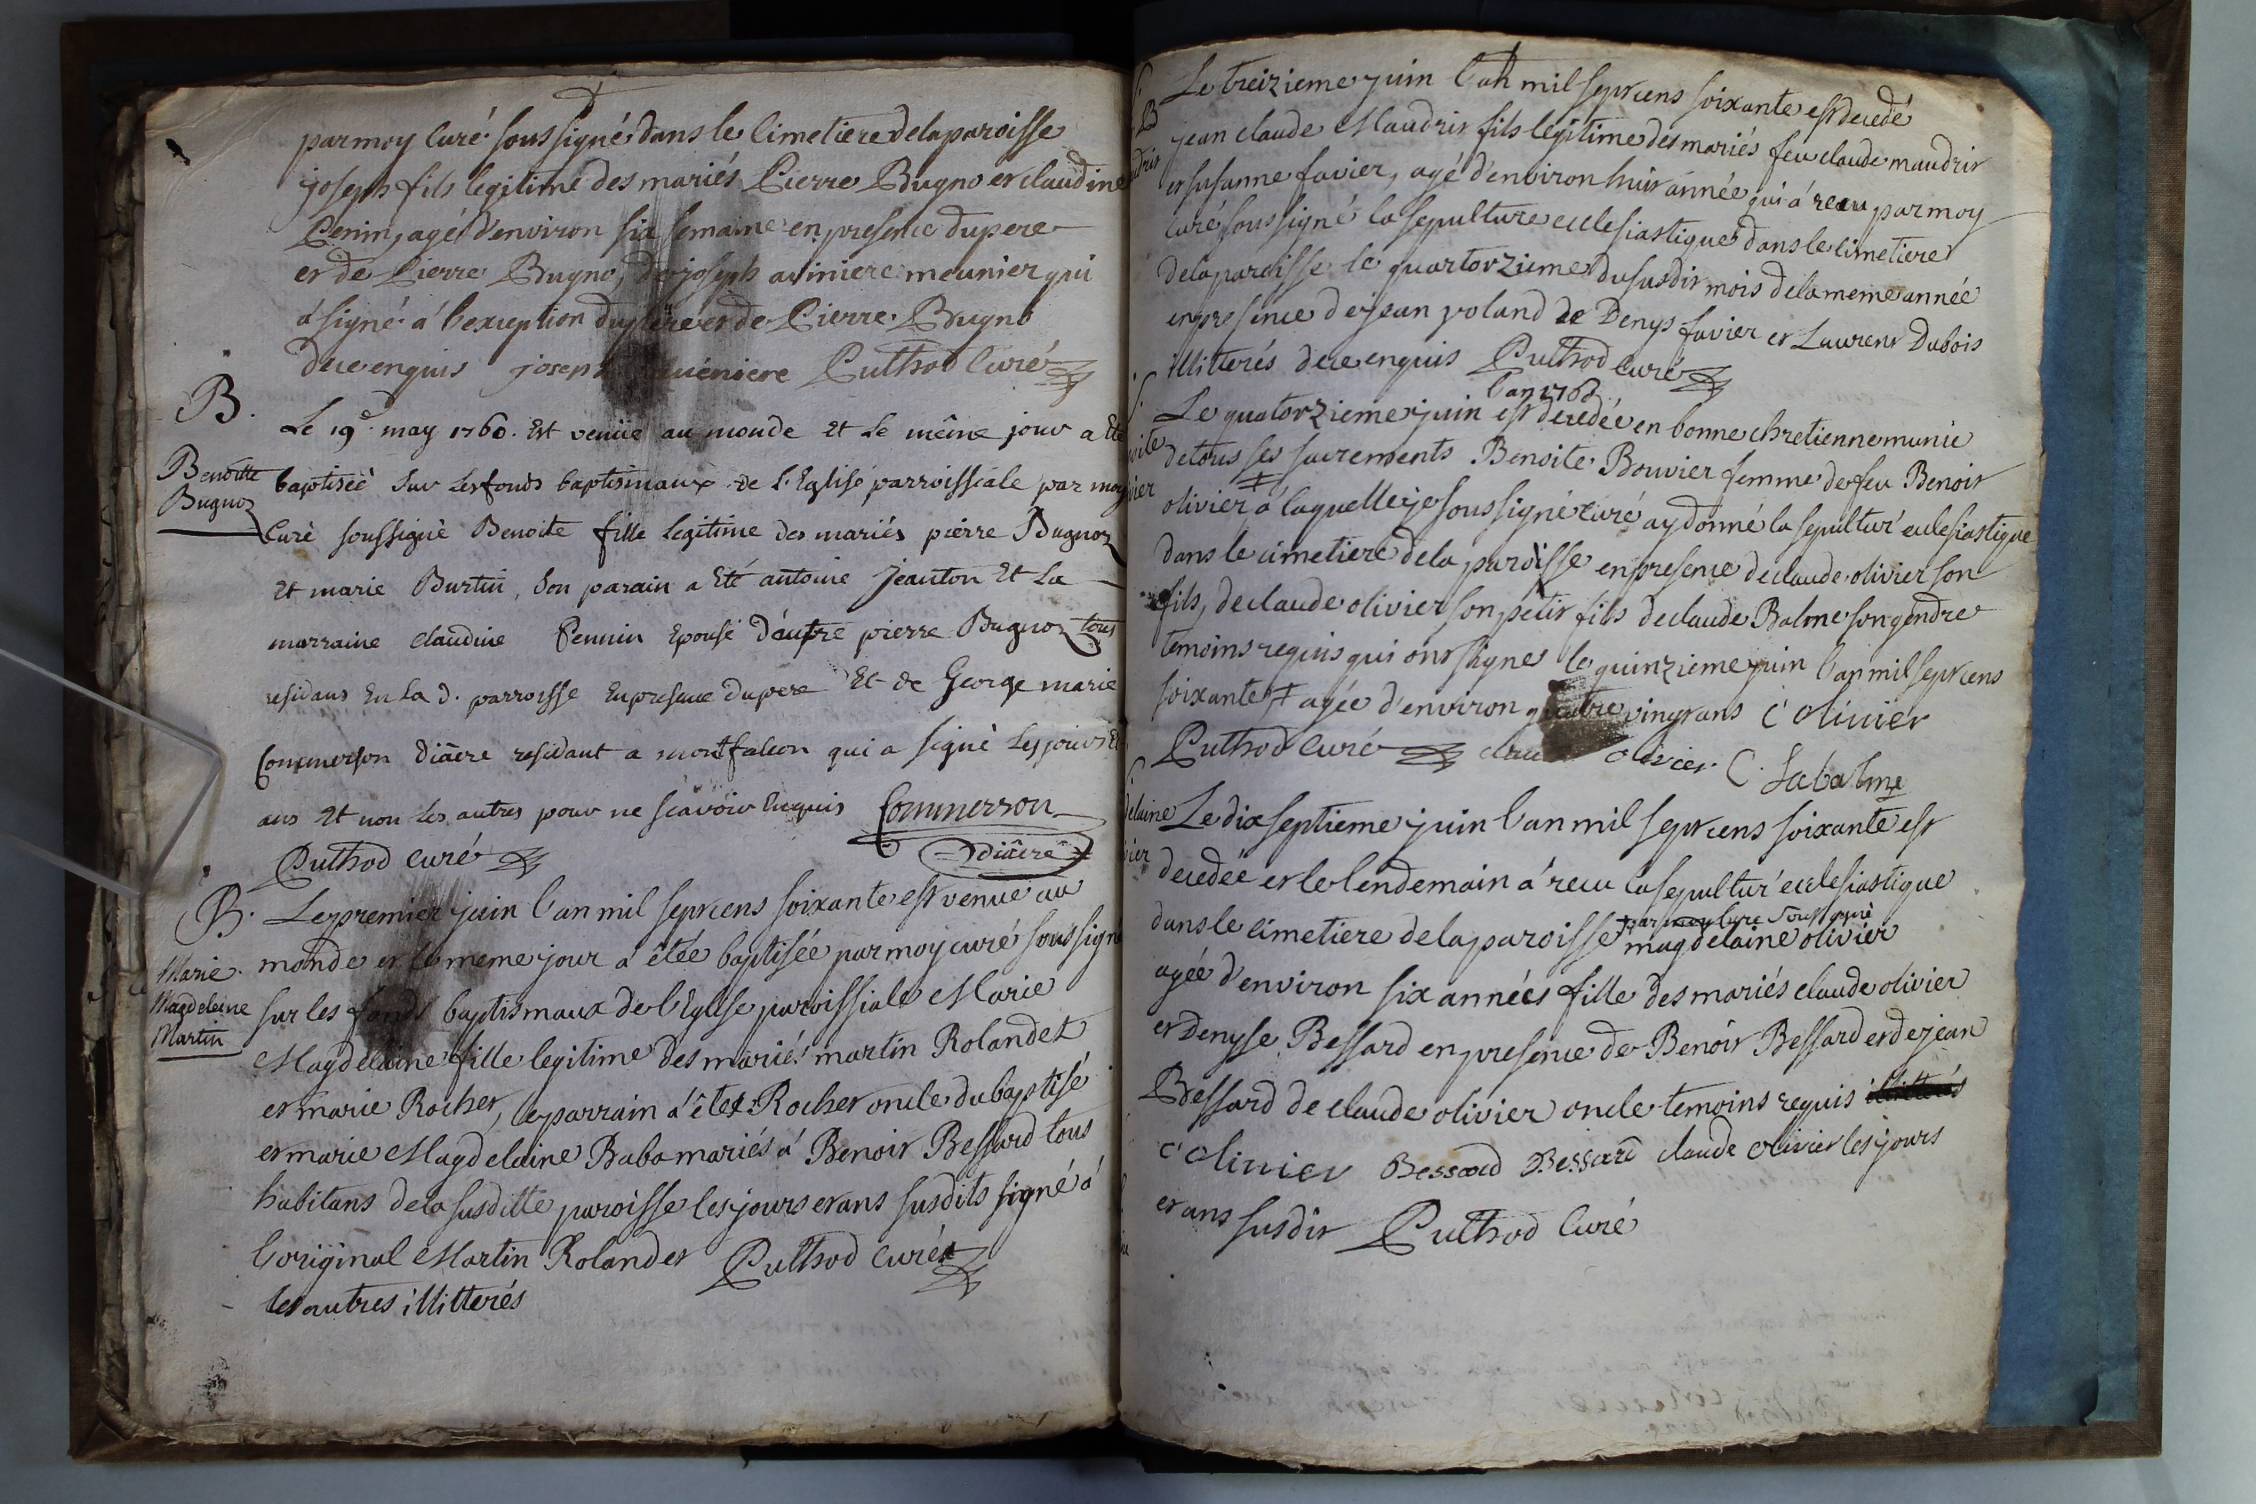 par moy Curé soussigné dans le Cimetiere de la paroisse
joseph fils legitime des mariés Pierre Bugno et claudine
Penin, agé d'environ six semaine en presence du pere
et de Pierre Bugno, de joseph aviniere meunier qui
a signé á l'exception du pere et de Pierre Bugno
de ce enquis joseph avéniere Puthod Curé
B.
Benoitte
Bugnoz
Le 19e may 1760. Est venüe au monde et le même jour a Eté
baptiseè sur les fonds baptismaux de l'Eglise parroissiale par moy
Curè soussignè Benoite fille legitime des mariés pierre Bugnoz
et marie Burtin, son parain a Eté antoine Jeanton Et La
marraine claudine Pennin Epouse d'autre pierre Bugnoz tous
residans En La d. parroisse En presence du pere Et de George marie
Commerson Diâcre residant a montfalcon qui a signè Les jours Et
ans Et non Les autres pour ne scavoir Enquis Commerson
diâcre
Puthod Curé
B.
Marie
Magdeleine
Martin
Le premier juin l'an mil sept cens soixante est venue au
monde et le meme jour a êtée baptisée par moy curé soussigné
sur les fonds baptismaux de l'Eglise paroissiale Marie
Magdelaine fille legitime des mariés martin Rolandet
et marie Rocher, le parrain a êtét Rocher oncle du baptisé
et marie Magdelaine Baba mariés á Benoit Bessard tous
habitans de la susditte paroisse les jours et ans susdits signé á
l'original Martin Rolandet Puthod curé
les autres illitterés
Le treizieme juin l'an mil sept cens soixante est decedé
jean claude Maudrit fils legitime des mariés feu claude maudrit
et susanne favier, agé d'environ huit année qui á recu par moy
curé soussigné la sepulture ecclesiastique dans le cimetiere
de la paroisse le quartorzieme du susdit mois de la meme année
en presence de jean yoland de Denys favier et Laurent Dubois
illitterés de ce enquis Puthod Curé
l'an 1760
Le quatorzieme juin est decedée en bonne chretienne munie
de tous ses sacrements Benoite Bouvier femme de feu Benoit
olivier á laquelle je soussigné curé ay donné la sepultur' eclesiastique
dans le cimetiere de la paroisse en presence de claude olivier son
fils, de claude olivier son petit fils de claude Balme son gendre
temoins requis qui ont signes le quinzieme juin l'an mil sept cens
soixante, ‡ agée d'environ quatre vingt ans C olivier
Puthod Curé claude olivier. C. Labalme
Le dix septieme juin l'an mil sept cens soixante est
decedée et le lendemain á recu la sepultur' ecclesiastique
‡ par moy Curé soussigné
dans le cimetiere de la paroisse magdelaine olivier
agée d'environ six années fille des mariés claude olivier
et Denyse Bessard en presence de Benoit Bessard et de jean
Bessard de claude olivier oncle temoins requis illitterés
C olivier Bessard Bessard claude olivier les jours
et ans susdit Puthod Curé